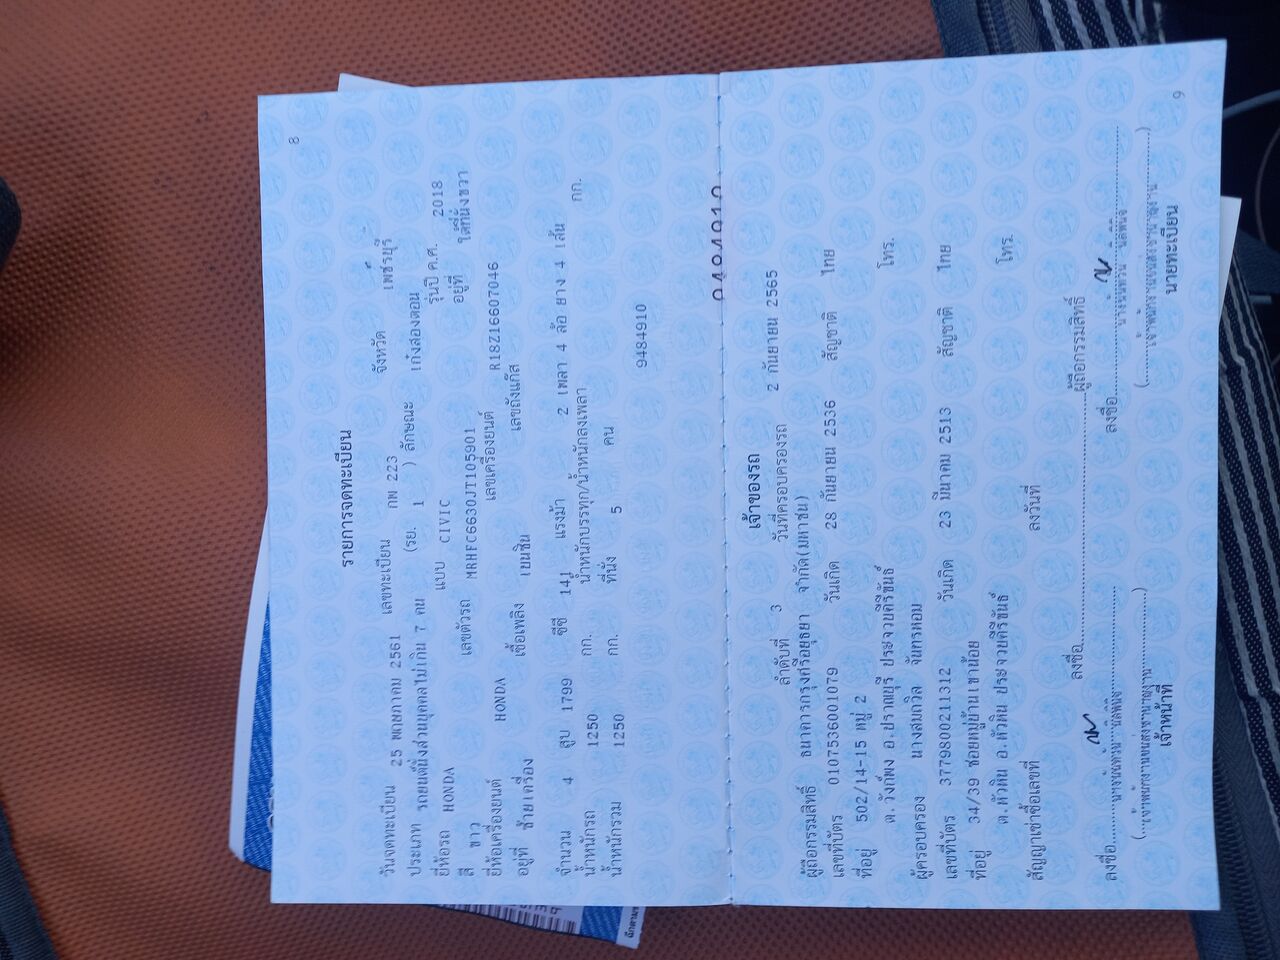 8
รายการจดทะเบียน
วันจดทะเบียน 25 พฤษภาคม 2561 เลขทะเบียน กพ 223 จังหวัด เพชรบุรี
ประเภท รถยนต์นั่งส่วนบุคคลไม่เกิน 7 คน (รย. 1 ) ลักษณะ เก๋งสองตอน
ยี่ห้อรถ HONDA แบบ CIVIC รุ่นปี ค.ศ. 2018
สี ขาว เลขตัวรถ MRHFC6630JT105901 อยู่ที่ ใต้ที่นั่งขวา
ยี่ห้อเครื่องยนต์ HONDA เลขเครื่องยนต์ R18Z16607046
อยู่ที่ ซ้ายเครื่อง เชื้อเพลิง เบนซิน เลขถังแก๊ส
จำนวน 4 สูบ 1799 ซีซี 141 แรงม้า 2 เพลา 4 ล้อ ยาง 4 เส้น
น้ำหนักรถ 1250 กก. น้ำหนักบรรทุก/น้ำหนักลงเพลา กก.
น้ำหนักรวม 1250 กก. ที่นั่ง 5 คน
9484910
เจ้าของรถ
ลำดับที่ 3 วันที่ครอบครองรถ 2 กันยายน 2565
ผู้ถือกรรมสิทธิ์ ธนาคารกรุงศรีอยุธยา จำกัด(มหาชน)
เลขที่บัตร 0107536001079 วันเกิด 28 กันยายน 2536 สัญชาติ ไทย
ที่อยู่ 502/14-15 หมู่ 2
ต.วังก์พง อ.ปราณบุรี ประจวบคีรีขันธ์ โทร.
ผู้ครอบครอง นางสมถวิล จันทรหอม
เลขที่บัตร 3779800211312 วันเกิด 23 มีนาคม 2513 สัญชาติ ไทย
ที่อยู่ 34/39 ซอยหมู่บ้านเขาน้อย
ต.หัวหิน อ.หัวหิน ประจวบคีรีขันธ์ โทร.
สัญญาเช่าซื้อเลขที่ ลงวันที่
ลงชื่อ ผู้ถือกรรมสิทธิ์
ลงชื่อ ลงชื่อ
เจ้าหน้าที่ นายทะเบียน
9